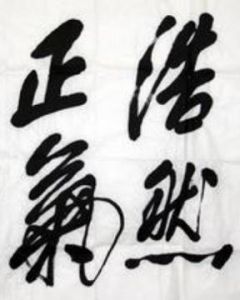 浩然
正氣